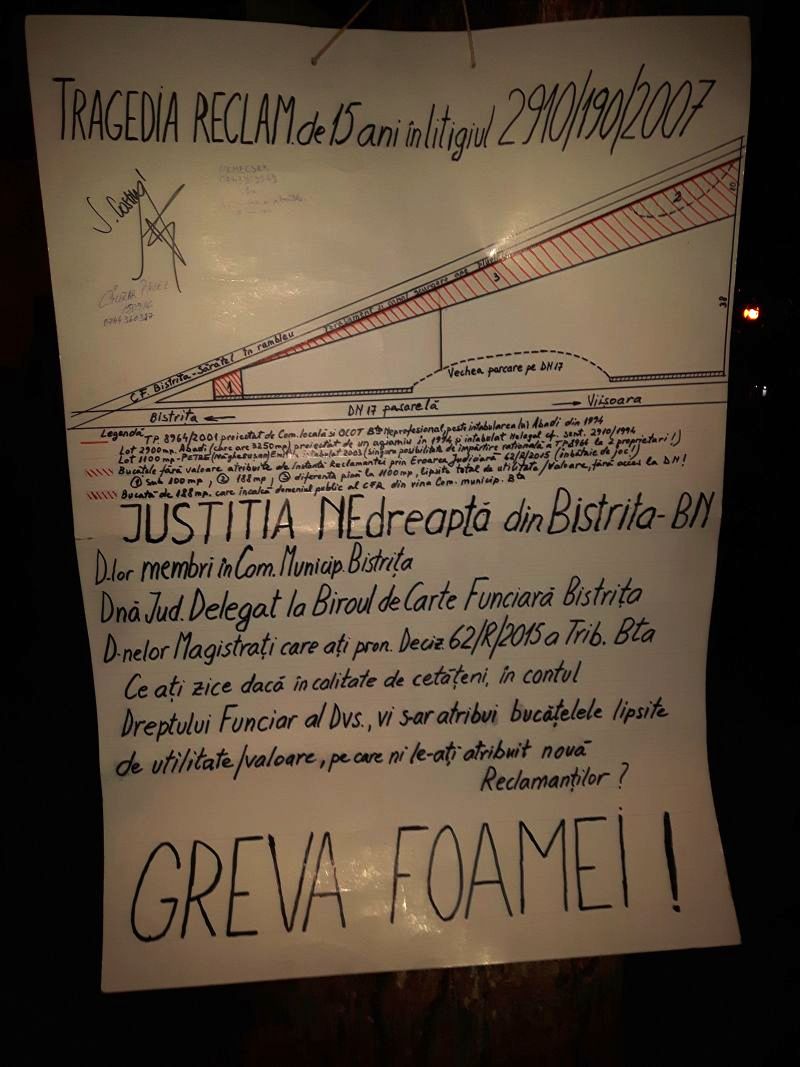 TRAGEDIA RECLAM. de 15 ani în litigiul 2910/190/2007
S. Costing
2
10
3
38
C.F. Bistrita-Sărăţel în rambleu
Terasament si canal scurgere ape
1
Vechea parcare pe DN17
Bistrita
DN 17 pasarelă
Viisoara
Legendă TP 8964/2001 proiectat de Com. locală si OCOT Bta Neprofesional, peste intabularea lui Abadi din 1994
Lot 2900mp. Abadi (care are 3250mp) proiectat de un agiamiu în 1994 si intabulat Nelegal cf. sent. 2910/1994
Lot 1100 mp - intabulat 2003 (singura posibilitate de împărtire rational a TP 8964 la 2 proprietari!)
Bucătile fără valoare atribuite de Instantă Reclamantei prin Eroarea Judiciară 62/R/2015 (înbătaie de joc!)
1 sub 100mp, 2 188mp, 3 diferenta pînă la 1100mp, lipsite total de utilitate/valoare, fără acces la DN!
Bucata de 188mp. care încalcă domeniul public al CFR din vina Com. municip. Bta
JUSTITIA NEdreaptă din Bistrita-BN
D.lor membri în Com. Municip. Bistriţa
Dnă Jud. Delegat la Biroul de Carte Funciară Bistriţa
D-nelor Magistraţi care aţi pron. Deciz. 62/R/2015 a Trib. Bta
Ce aţi zice dacă în calitate de cetăţeni, în contul
Dreptului Funciar al Dvs., vi s-ar atribui bucăţelele lipsite
de utilitate/valoare, pe care ni le-aţi atribuit nouă
Reclamanţilor ?
GREVA FOAMEI !